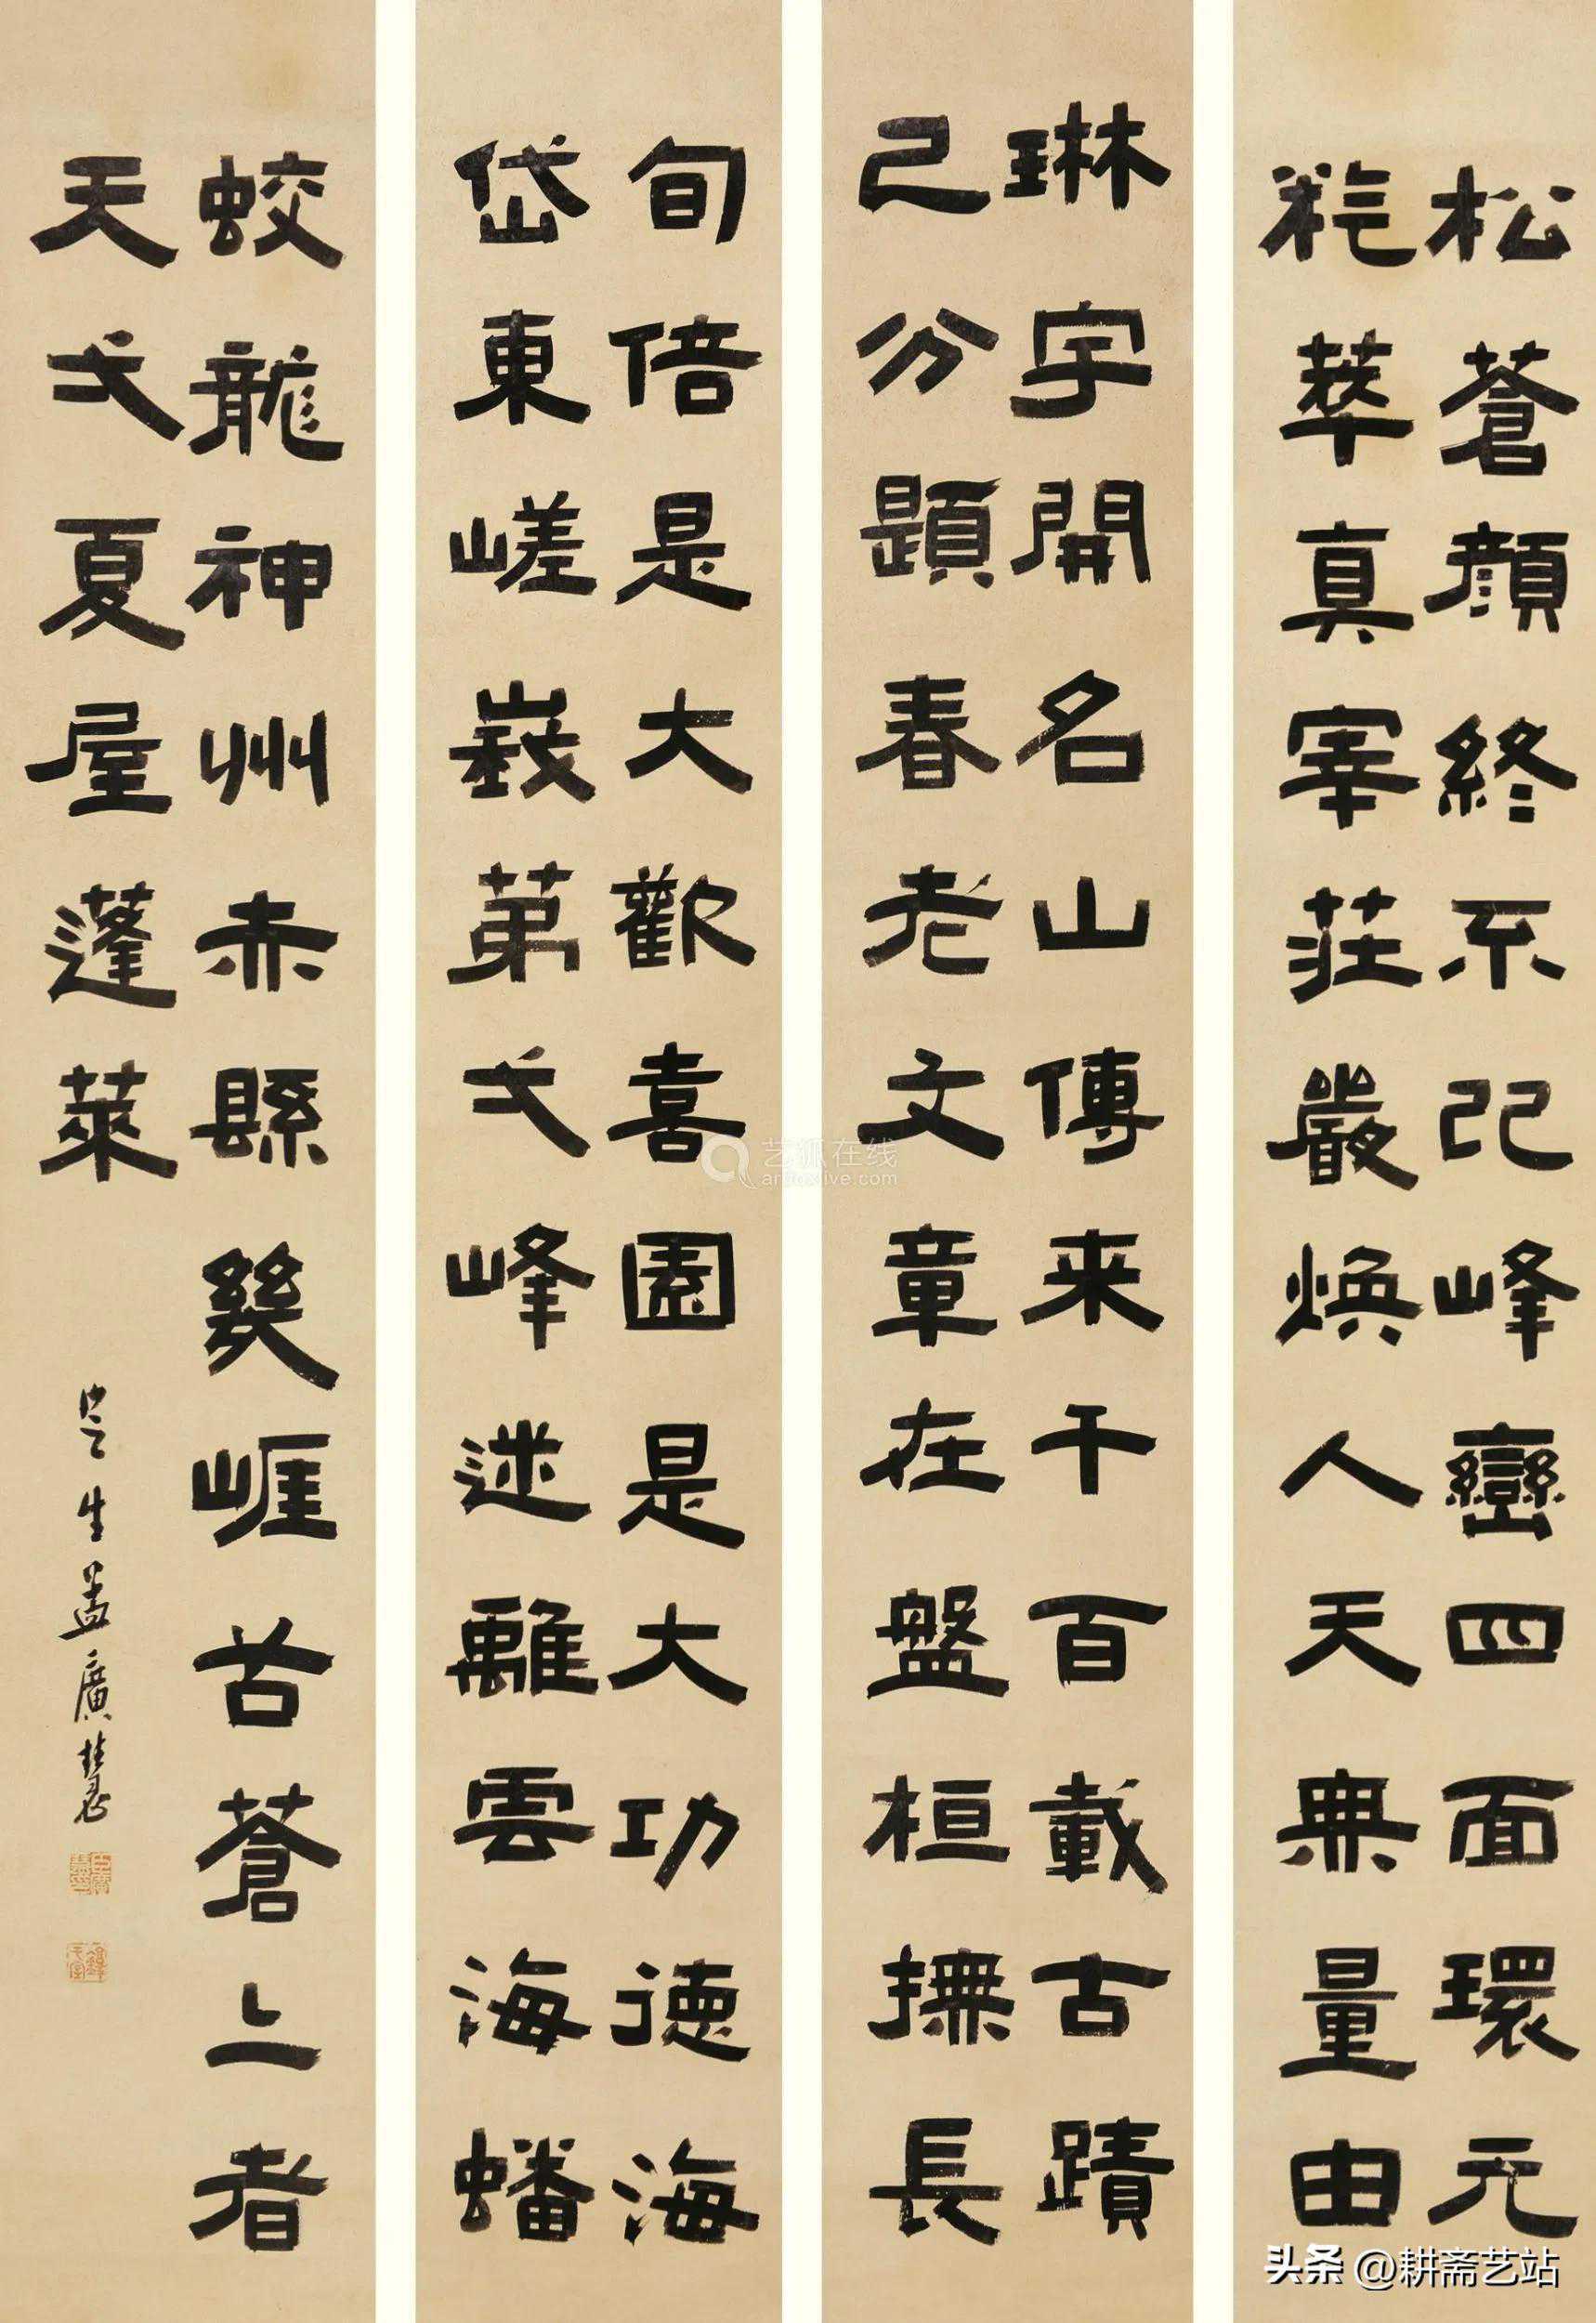 松蒼顏終不已峰巒四面環元
氣萃真宰莊嚴煥人天無量由
琳宇開名山傳来千百載古蹟
己分題春老文章在盤桓撫長
旬倍是大歡喜園是大功德海
岱東嵯峩第弌峰迷離雲海蟠
蛟龍神州赤縣幾崕古蒼上者
天弌夏屋蓬萊
生孟廣慧
艺狐在线
artfoxlive.com
头条 @耕斋艺站